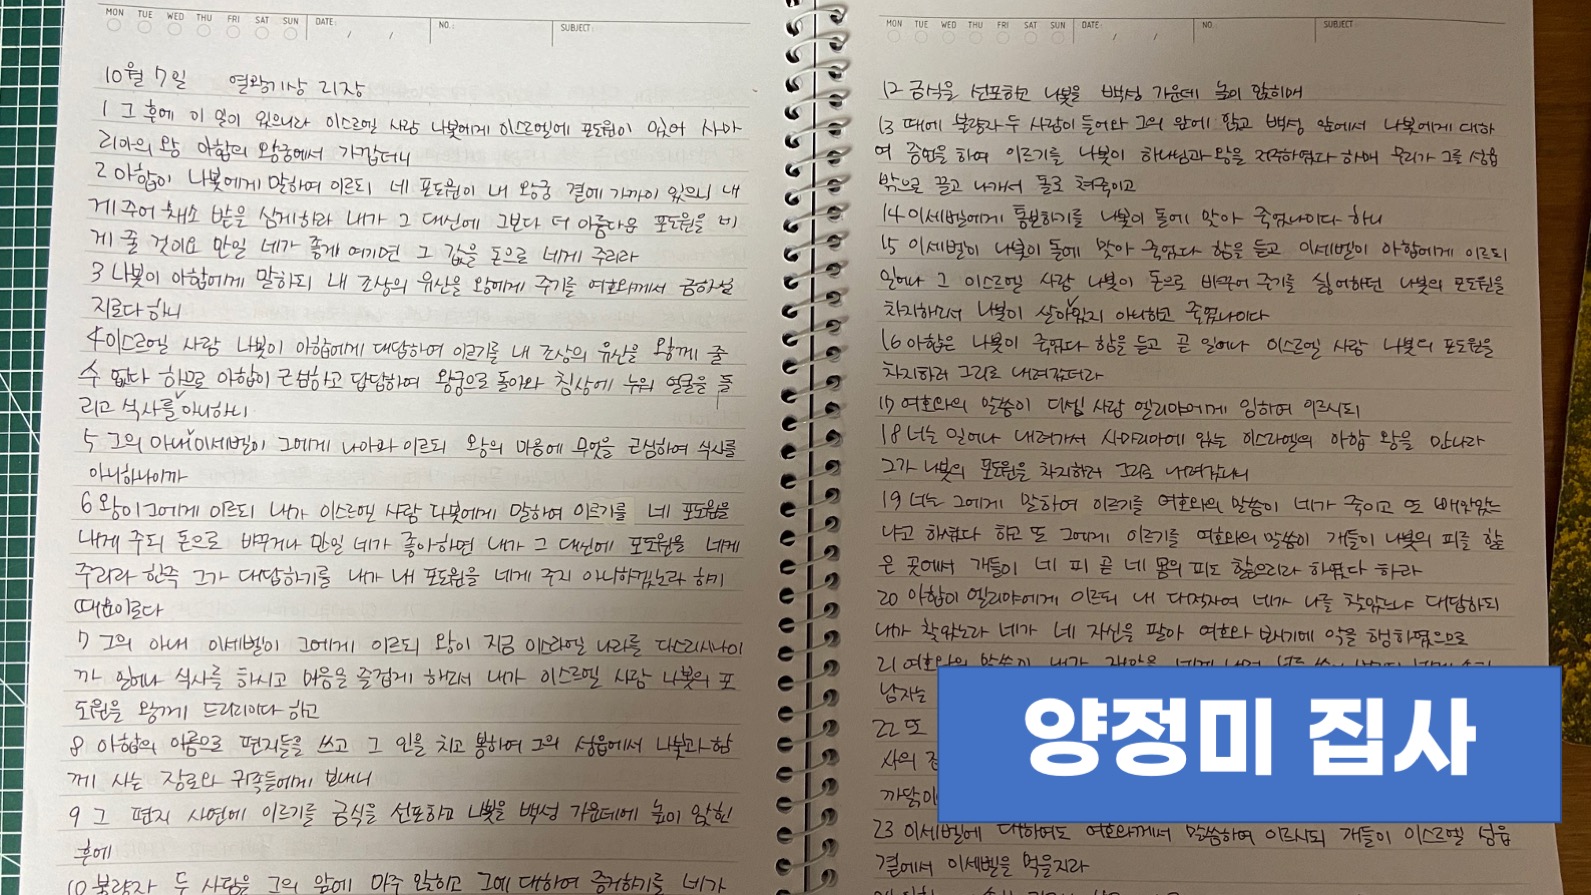 MON TUE WED THU FRI SAT SUN DATE: / / NO.: SUBJECT:
10월 7일 열왕기상 21장
1 그 후에 이 일이 있으니라 이스르엘 사람 나봇에게 이스르엘에 포도원이 있어 사마
리아의 왕 아합의 왕궁에서 가깝더니
2 아합이 나봇에게 말하여 이르되 네 포도원이 내 왕궁 곁에 가까이 있으니 내
게 주어 채소 밭을 삼게하라 내가 그 대신에 그보다 더 아름다운 포도원을 네
게 줄 것이요 만일 네가 좋게 여기면 그 값을 돈으로 네게 주리라
3 나봇이 아합에게 말하되 내 조상의 유산을 왕에게 주기를 여호와께서 금하실
지로다 하니
4 이스르엘 사람 나봇이 아합에게 대답하여 이르기를 내 조상의 유산을 왕께 줄
수 없다 하므로 아합이 근심하고 답답하여 왕궁으로 돌아와 침상에 누워 얼굴을 돌
리고 식사를 아니하니
5 그의 아내 이세벨이 그에게 나아와 이르되 왕의 마음에 무엇을 근심하여 식사를
아니하나이까
6 왕이 그에게 이르되 내가 이스르엘 사람 나봇에게 말하여 이르기를 네 포도원을
내게 주되 돈으로 바꾸거나 만일 네가 좋아하면 내가 그 대신에 포도원을 네게
주리라 한즉 그가 대답하기를 내가 내 포도원을 네게 주지 아니하겠노라 하기
때문이로다
7 그의 아내 이세벨이 그에게 이르되 왕이 지금 이스라엘 나라를 다스리시나이
까 일어나 식사를 하시고 마음을 즐겁게 하소서 내가 이스르엘 사람 나봇의 포
도원을 왕께 드리리이다 하고
8 아합의 이름으로 편지들을 쓰고 그 인을 치고 봉하여 그의 성읍에서 나봇과 함
께 사는 장로와 귀족들에게 보내니
9 그 편지 사연에 이르기를 금식을 선포하고 나봇을 백성 가운데에 높이 앉힌
후에
10 불량자 두 사람을 그의 앞에 마주 앉히고 그에 대하여 증거하기를 네가
MON TUE WED THU FRI SAT SUN DATE: / / NO.: SUBJECT:
12 금식을 선포하고 나봇을 백성 가운데 높이 앉히매
13 때에 불량자 두 사람이 들어와 그의 앞에 앉고 백성 앞에서 나봇에게 대하
여 증언을 하여 이르기를 나봇이 하나님과 왕을 저주하였다 하매 무리가 그를 성읍
밖으로 끌고 나가서 돌로 쳐죽이고
14 이세벨에게 통보하기를 나봇이 돌에 맞아 죽었나이다 하니
15 이세벨이 나봇이 돌에 맞아 죽었다 함을 듣고 이세벨이 아합에게 이르되
일어나 그 이스르엘 사람 나봇이 돈으로 바꾸어 주기를 싫어하던 나봇의 포도원을
차지하소서 나봇이 살아있지 아니하고 죽었나이다
16 아합은 나봇이 죽었다 함을 듣고 곧 일어나 이스르엘 사람 나봇의 포도원을
차지하러 그리로 내려갔더라
17 여호와의 말씀이 디셉 사람 엘리야에게 임하여 이르시되
18 너는 일어나 내려가서 사마리아에 있는 이스라엘의 아합 왕을 만나라
그가 나봇의 포도원을 차지하러 그리로 내려갔나니
19 너는 그에게 말하여 이르기를 여호와의 말씀이 네가 죽이고 또 빼앗았느
냐고 하셨다 하고 또 그에게 이르기를 여호와의 말씀이 개들이 나봇의 피를 핥
은 곳에서 개들이 네 피 곧 네 몸의 피도 핥으리라 하였다 하라
20 아합이 엘리야에게 이르되 내 대적자여 네가 나를 찾았느냐 대답하되
내가 찾았노라 네가 네 자신을 팔아 여호와 보시기에 악을 행하였으므로
21 여호와의 말씀이 내가 재앙을 네게 내려
남자는
22 또
사의
까닭이
양정미 집사
23 이세벨에 대하여도 여호와께서 말씀하여 이르시되 개들이 이스르엘 성읍
곁에서 이세벨을 먹을지라